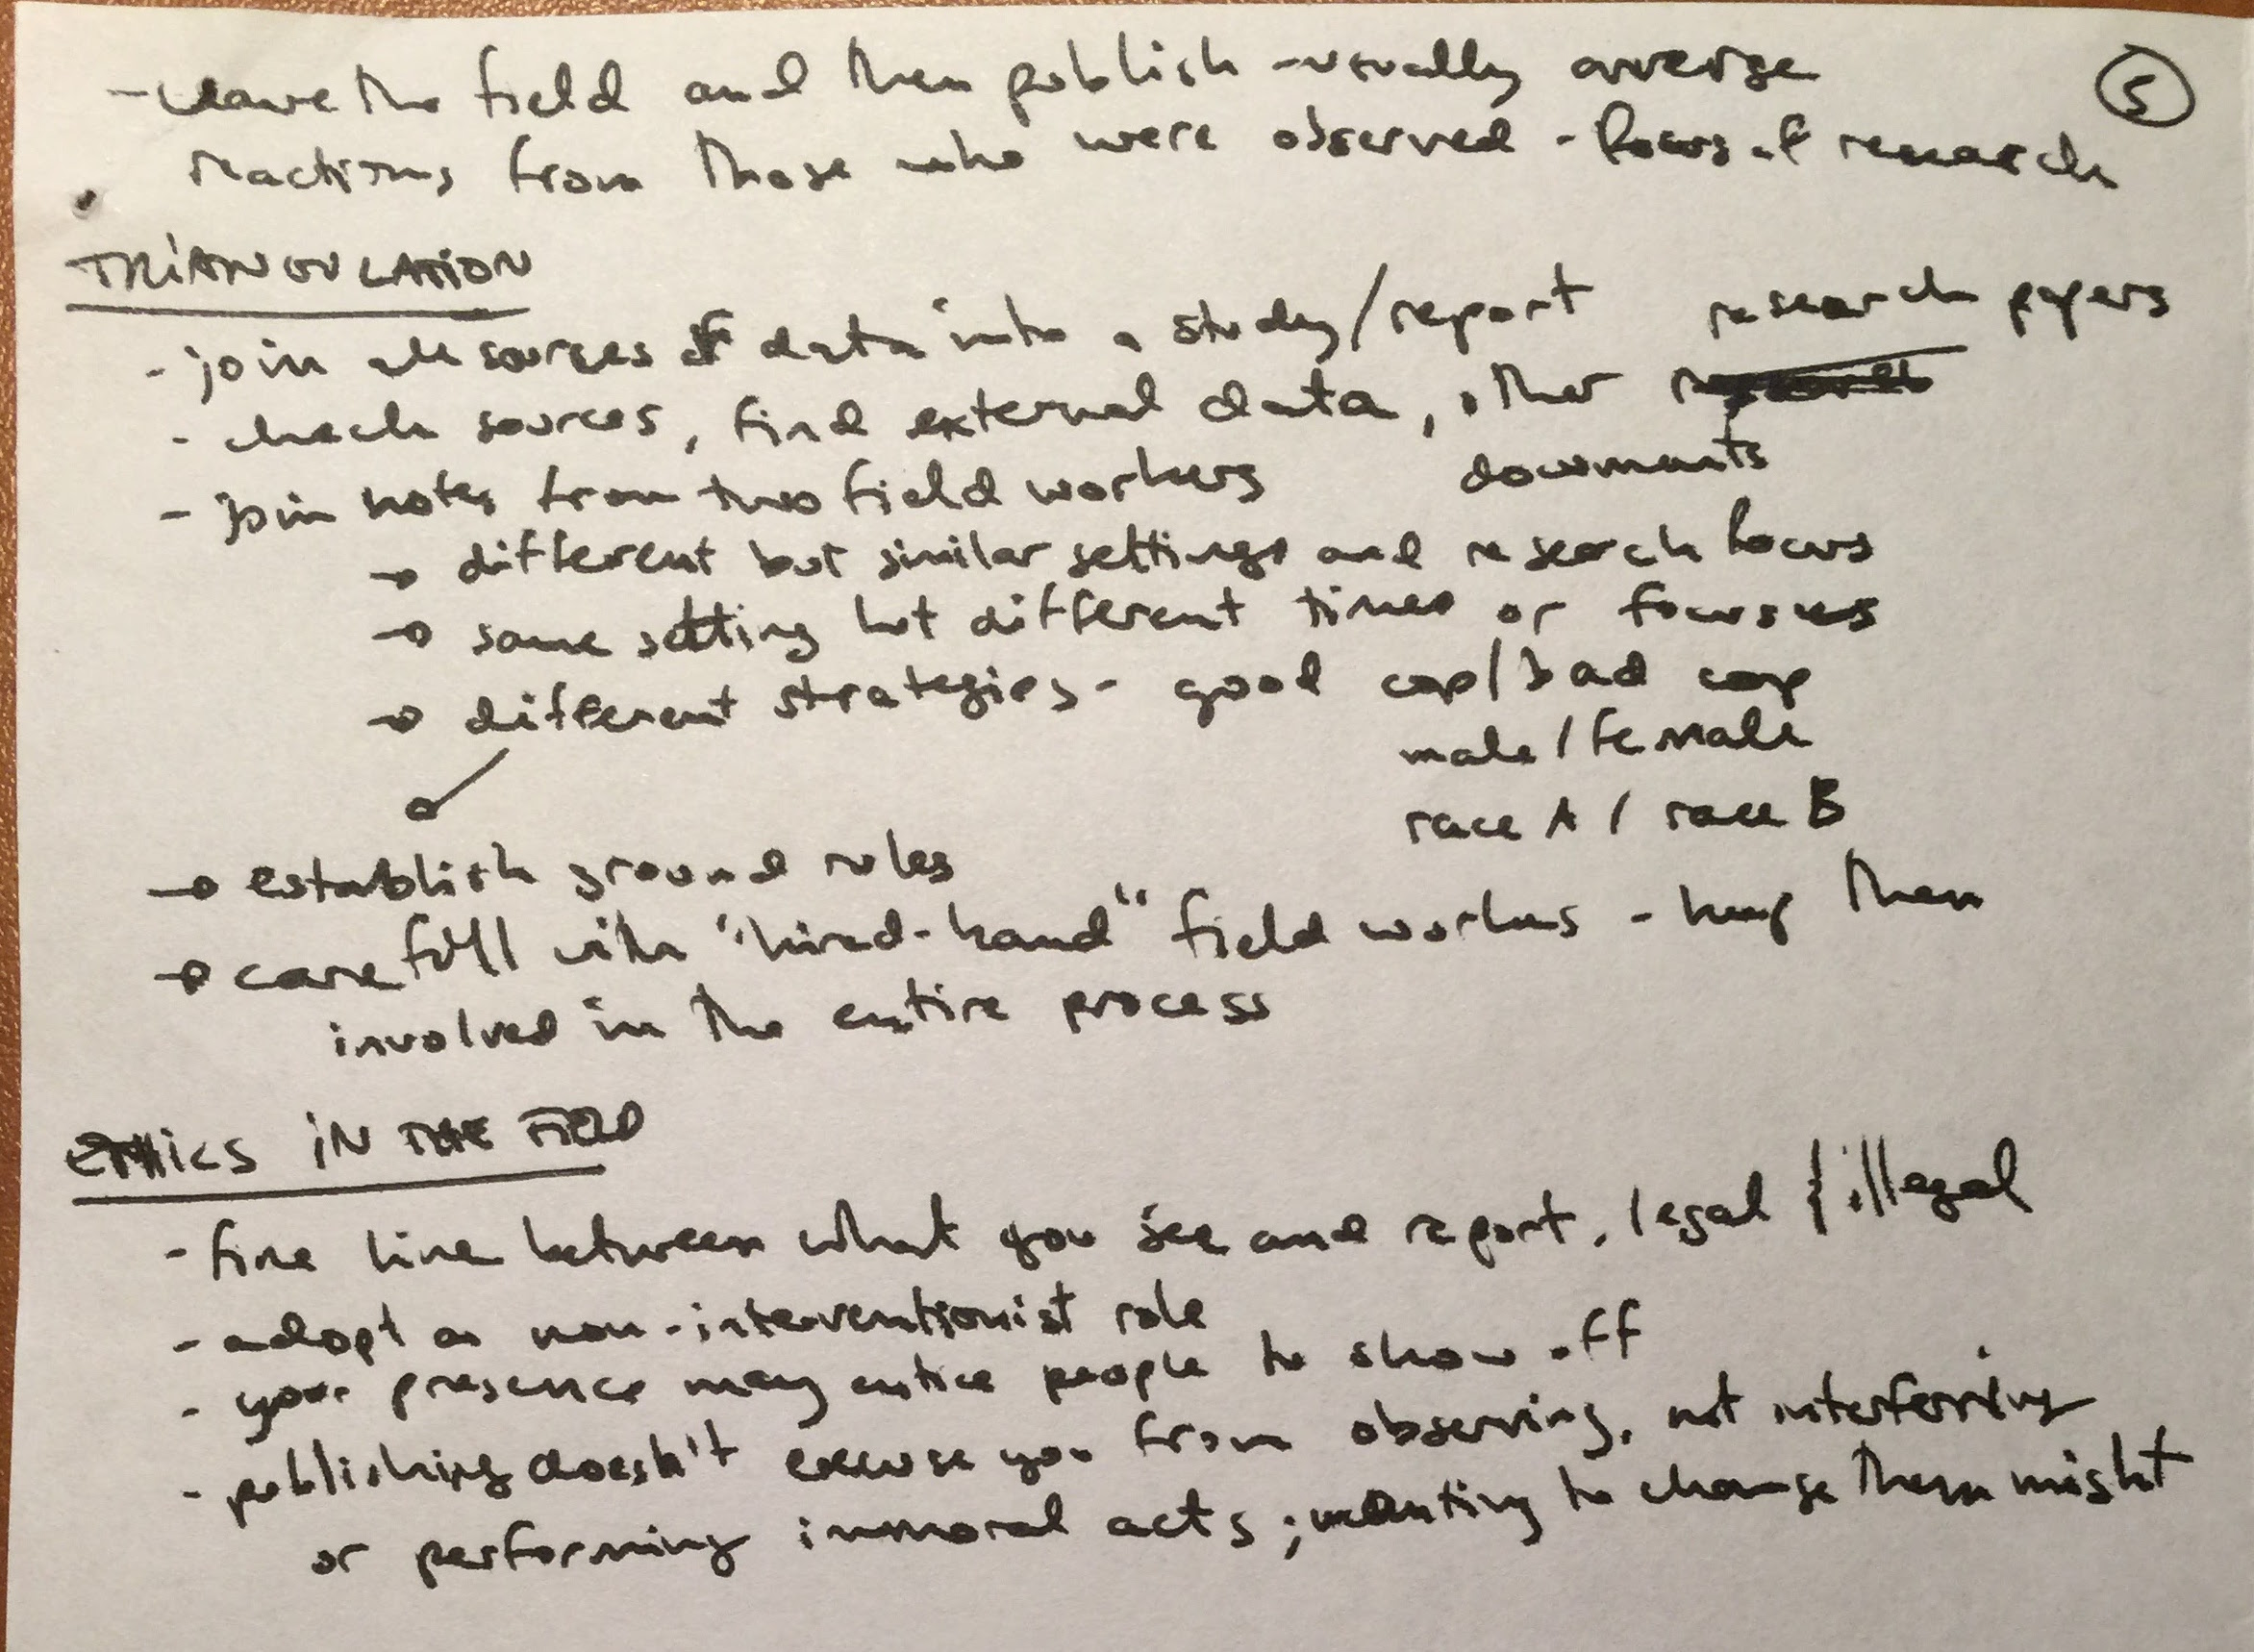 - leave the field and then publish - usually averse
5
reactions from those who were observed - focus of research
TRiANGULATiON
- join all sources of data into a study/report
research papers
- check sources, find external data, other
documents
- join notes from two field workers
→ different but similar settings and research focus
→ same setting but different times or focuses
→ different strategies - good cop/bad cop
male/female
race A / race B
→ establish ground rules
→ carefull with "hired-hand" field workers - keep them
involved in the entire process
ETHiCS iN THE FIELD
- fine line between what you see and report, legal & illegal
- adopt a non-interventionist role
- your presence may entice people to show off
- publishing doesn't excuse you from observing, not interferring
or performing immoral acts; wanting to change them might